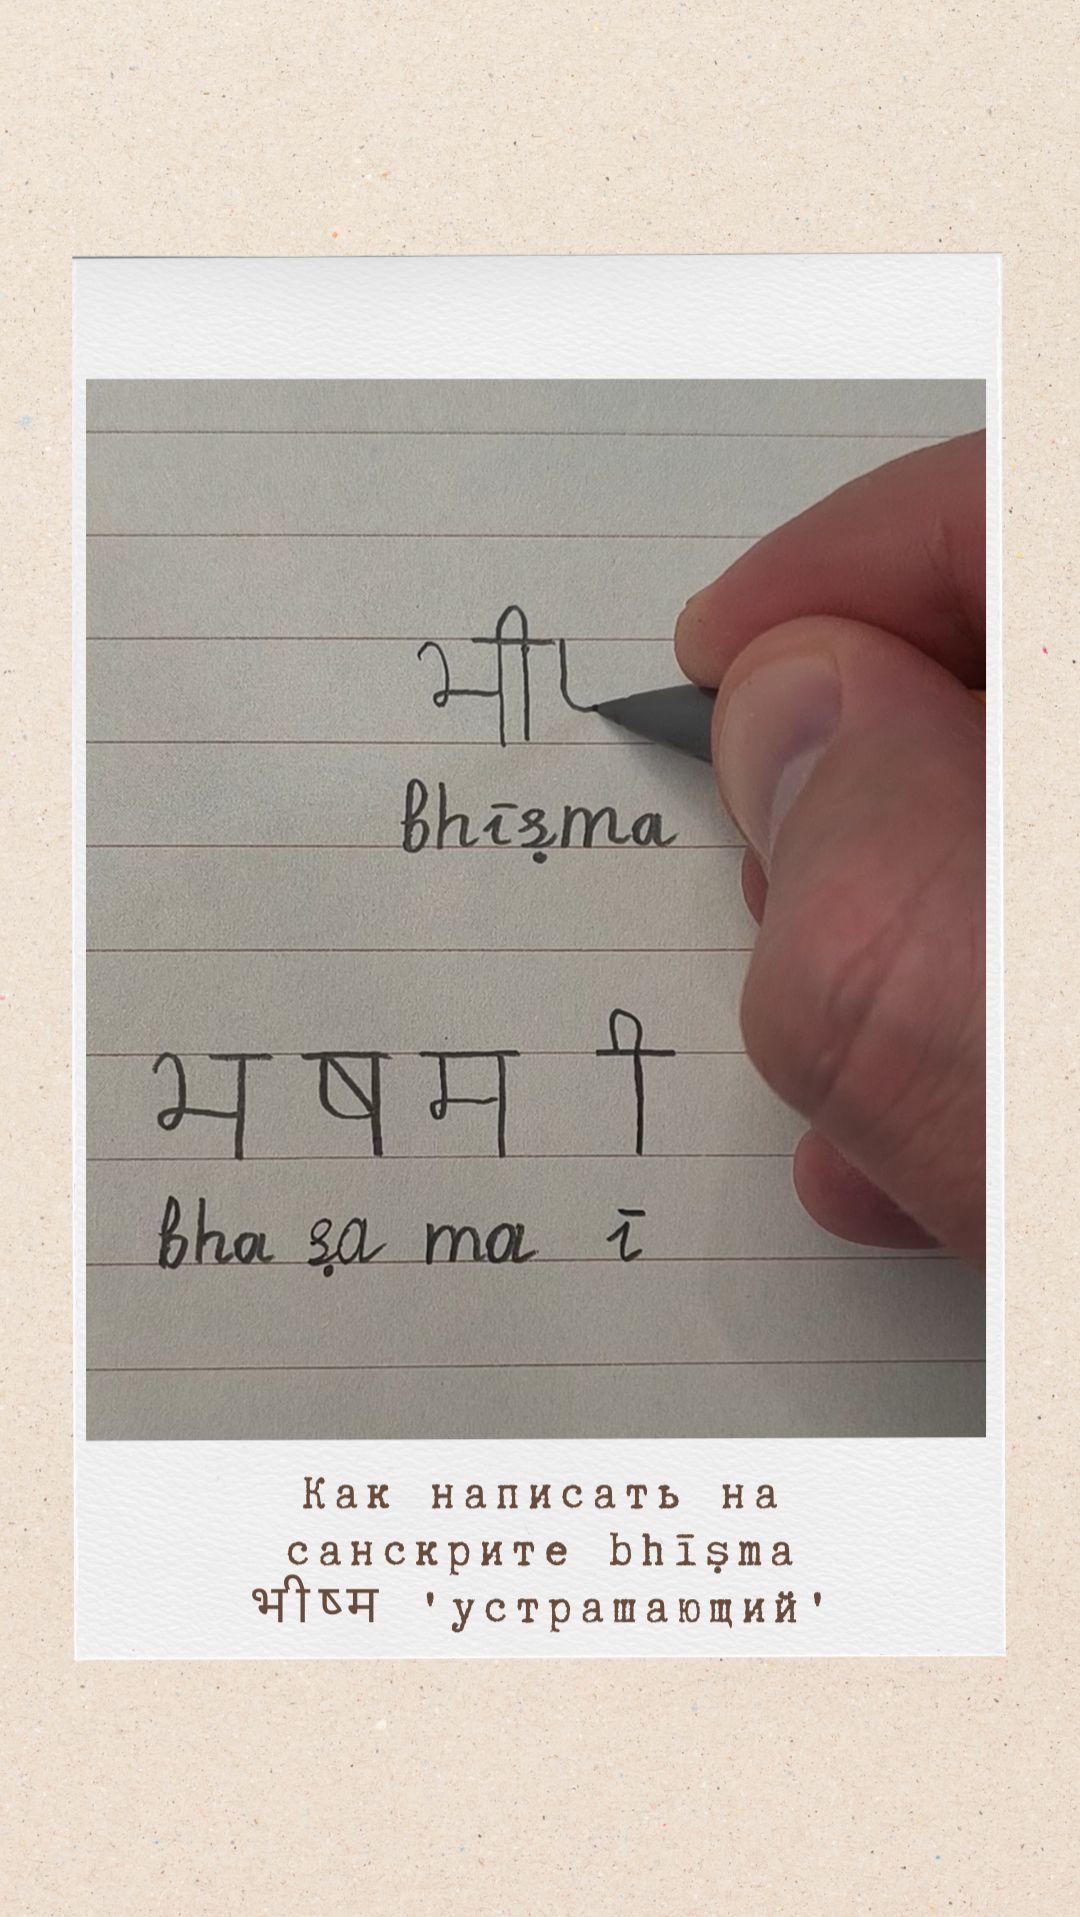 भी
bhīṣma
भ ष म ी
bha ṣa ma ī
Как написать на
санскрите bhīṣma
भीष्म 'устрашающий'